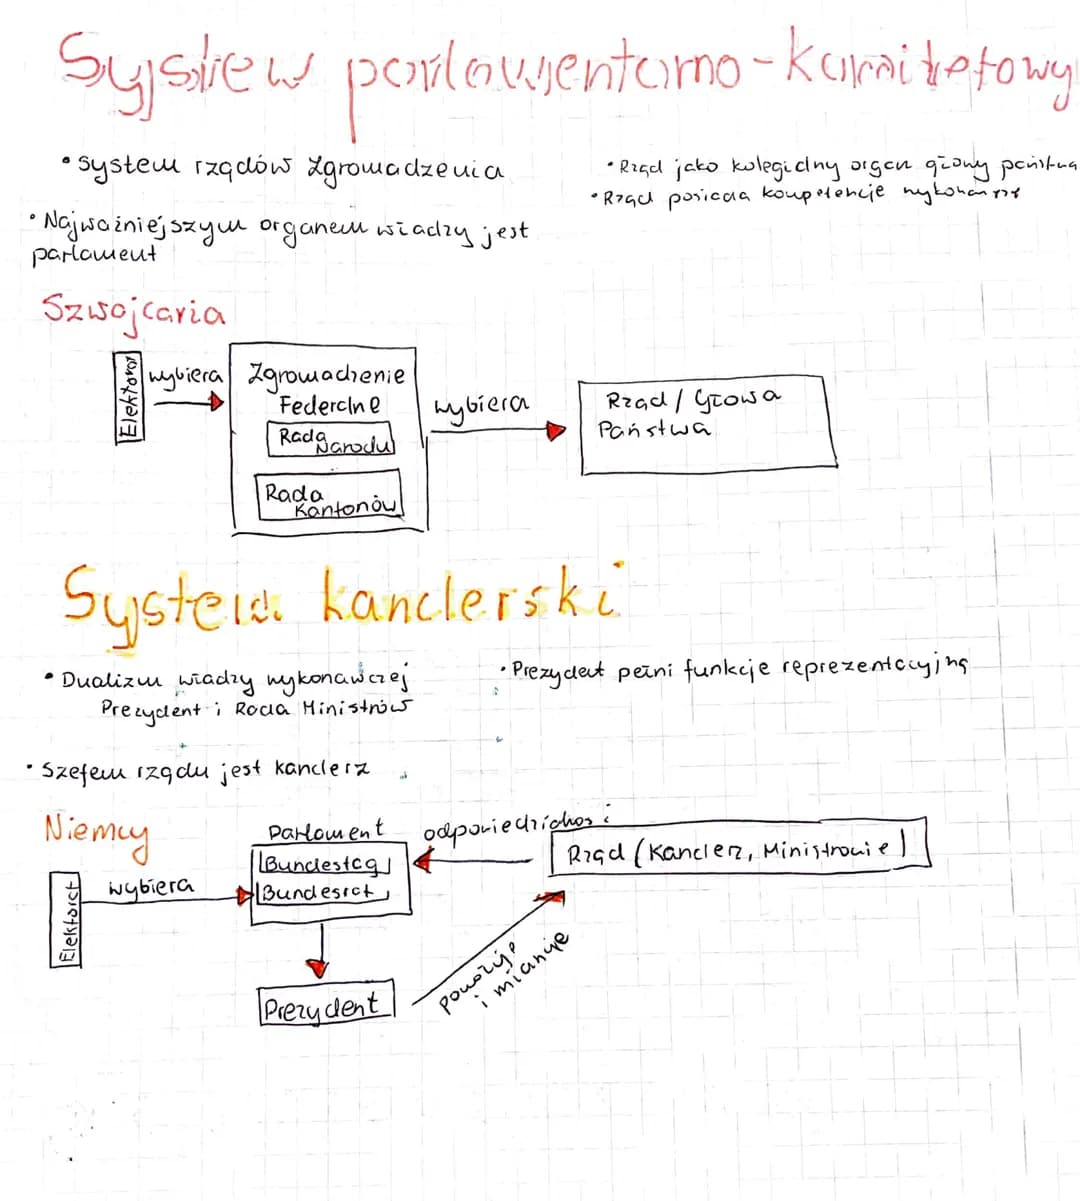 System parlamentarno-komitetowy
• system rządów zgromadzenia
• Najważniejszym organem władzy jest
parlament
• Rząd jako kolegialny organ głowy państwa
• Rząd posiada kompetencje wykonawcze
Szwajcaria
Elektorat
wybiera
Zgromadzenie
Federalne
Rada
Narodu
Rada
Kantonów
wybiera
Rząd / Głowa
Państwa
System kanclerski
• Dualizm władzy wykonawczej
Prezydent i Rada Ministrów
• Prezydent pełni funkcje reprezentacyjną
• Szefem rządu jest kanclerz
Niemcy
Elektorat
wybiera
Parlament
Bundestag
Bundesrat
odpowiedzialność
Rząd (Kanclerz, Ministrowie)
Prezydent
powołuje
i mianuje